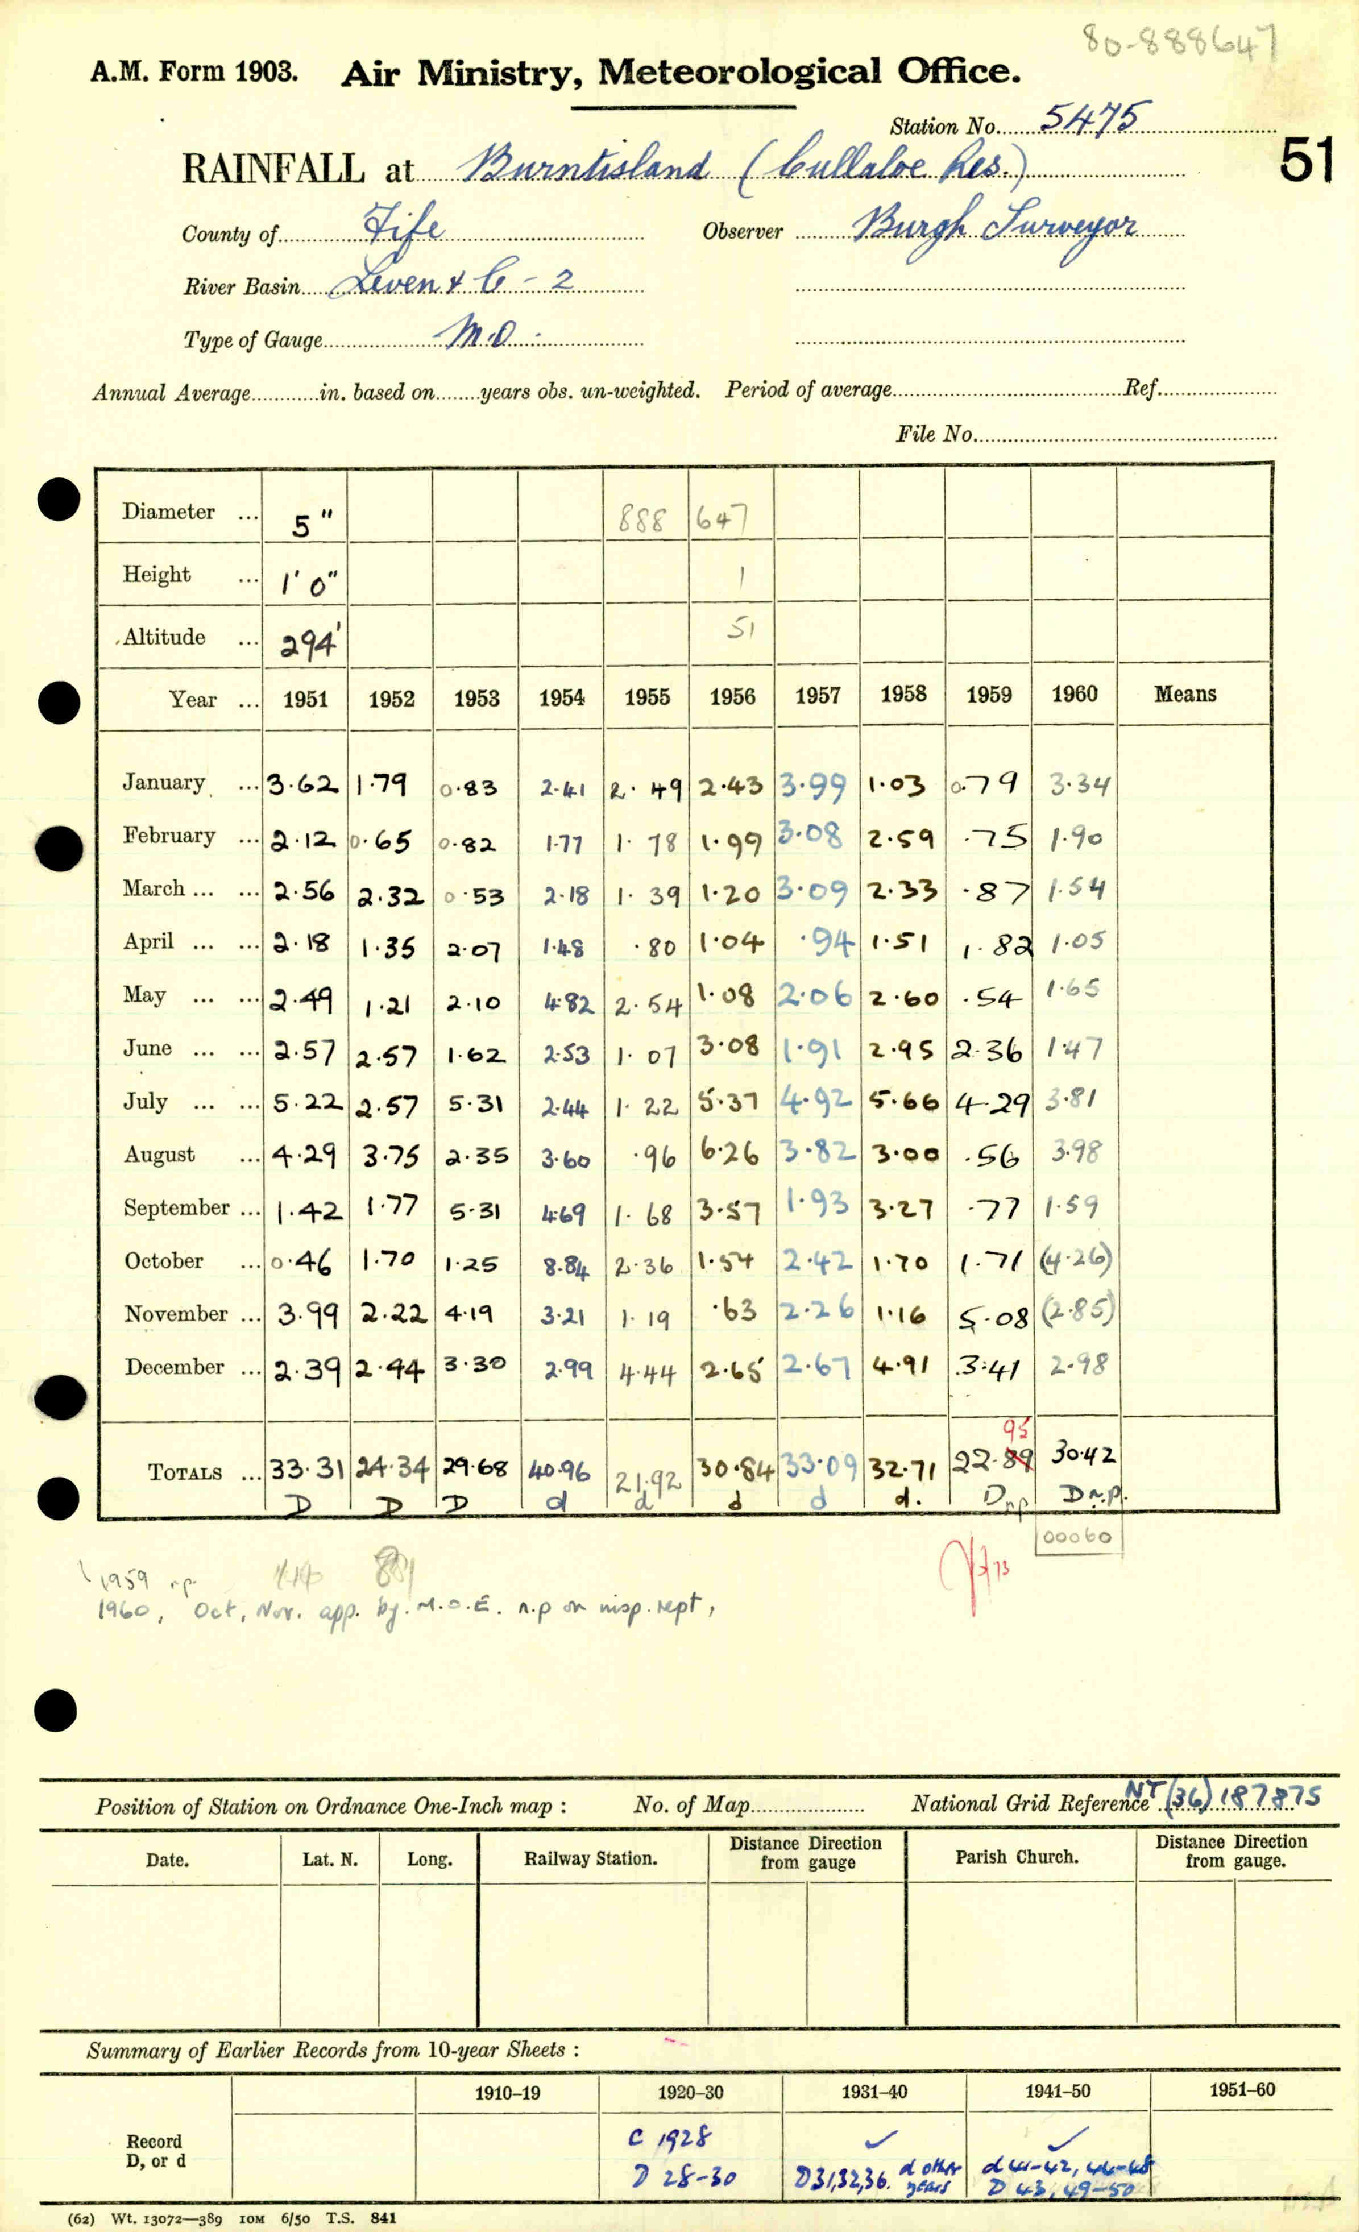 80-888647
A.M. Form 1903. Air Ministry, Meteorological Office.
Station No. 5475
51
RAINFALL at Burntisland (Cullaloe Res.)
County of Fife Observer Burgh Surveyor
River Basin Leven & C - 2
Type of Gauge M.O.
Annual Average in. based on years obs. un-weighted. Period of average Ref.
File No.
Diameter ... 5" 888 647
Height ... 1' 0" 1
Altitude ... 294' 51
Year ... 1951 1952 1953 1954 1955 1956 1957 1958 1959 1960 Means
January ... 3.62 1.79 0.83 2.41 2.49 2.43 3.99 1.03 0.79 3.34
February ... 2.12 0.65 0.82 1.77 1.78 1.99 3.08 2.59 .75 1.90
March ... ... 2.56 2.32 0.53 2.18 1.39 1.20 3.09 2.33 .87 1.54
April ... ... 2.18 1.35 2.07 1.48 .80 1.04 .94 1.51 1.82 1.05
May ... ... 2.49 1.21 2.10 4.82 2.54 1.08 2.06 2.60 .54 1.65
June ... ... 2.57 2.57 1.62 2.53 1.07 3.08 1.91 2.95 2.36 1.47
July ... ... 5.22 2.57 5.31 2.44 1.22 5.37 4.92 5.66 4.29 3.81
August ... 4.29 3.75 2.35 3.60 .96 6.26 3.82 3.00 .56 3.98
September ... 1.42 1.77 5.31 4.69 1.68 3.57 1.93 3.27 .77 1.59
October ... 0.46 1.70 1.25 8.84 2.36 1.54 2.42 1.70 1.71 (4.26)
November ... 3.99 2.22 4.19 3.21 1.19 .63 2.26 1.16 5.08 (2.85)
December ... 2.39 2.44 3.30 2.99 4.44 2.65 2.67 4.91 3.41 2.98
95
TOTALS ... 33.31 24.34 29.68 40.96 21.92 30.84 33.09 32.71 22.89 30.42
D D D d d d d d. D np D n.p.
00060
1959 n.p.
1960, Oct, Nov. app. by. M.O.E. n.p on insp. rept,
Position of Station on Ordnance One-Inch map : No. of Map National Grid Reference NT (36) 187875
Date. Lat. N. Long. Railway Station. Distance Direction from gauge Parish Church. Distance Direction from gauge.
Summary of Earlier Records from 10-year Sheets :
1910–19 1920–30 1931–40 1941–50 1951–60
Record D, or d
C 1928 ✓ ✓
D 28-30 D31,32,36. d other years d 41-42, 44-48
D 43, 49-50
(62) Wt. 13072—389 10M 6/50 T.S. 841